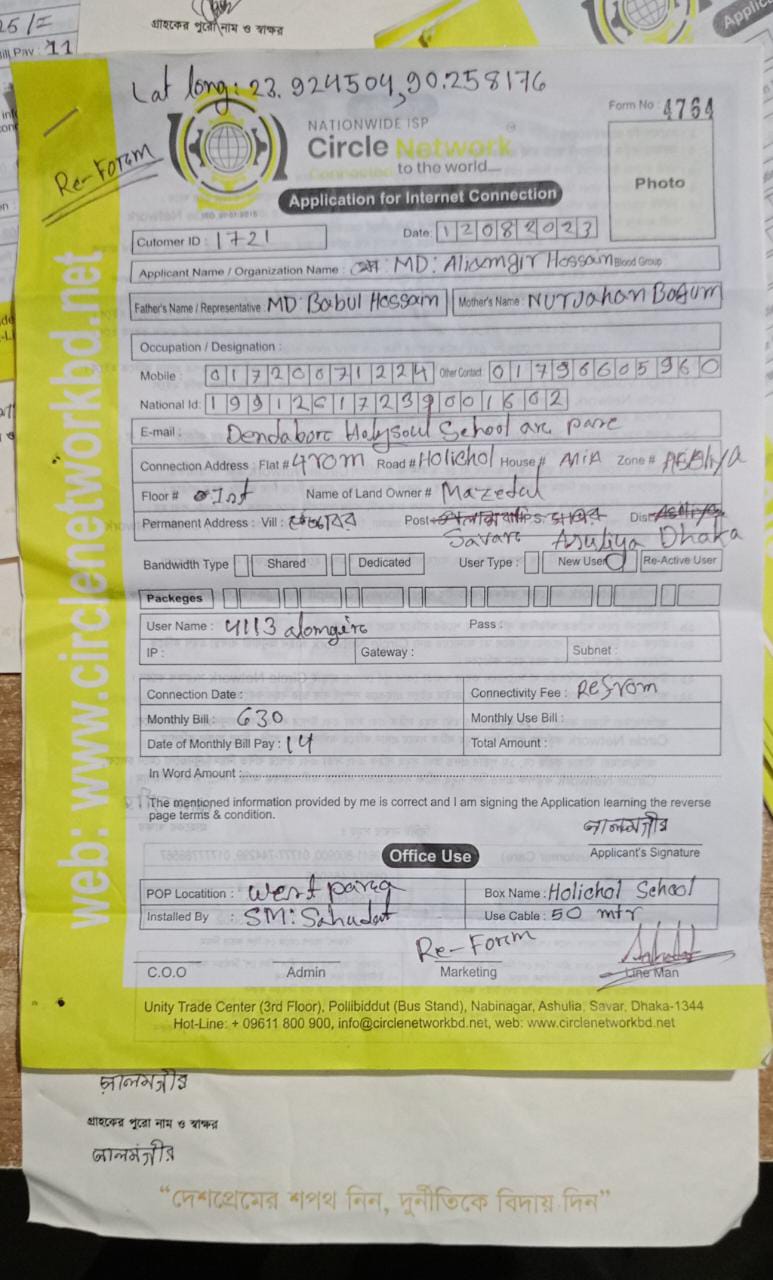 25/=
গ্রাহকের পুরো নাম ও স্বাক্ষর
Bill Pay : 11
Lat long: 23.924504,90.258176
Form No : 4764
NATIONWIDE ISP
Circle Network
Connected to the world...
Re-Form
Photo
Application for Internet Connection
Cutomer ID : 1721
Date: 12082023
Applicant Name / Organization Name : MD: Aliamgir Hossain Blood Group
Father's Name / Representative : MD Babul Hossain Mother's Name : Nurjahan Bagum
Occupation / Designation :
Mobile : 01720071224 Other Contact 01796605960
National Id: 19912617239001602
E-mail : Dendabore Holysoul School are pare
Connection Address : Flat # 4rom Road # Holichol House # Zone #
Floor # 1st Name of Land Owner # Mazedul
Permanent Address : Vill : Post P.S. Dist
Savare Asuliya Dhaka
Bandwidth Type Shared Dedicated User Type : New User Re-Active User
Packeges
User Name : 4113 alomgire Pass :
IP : Gateway : Subnet :
Connection Date : Connectivity Fee : Refrom
Monthly Bill : 630 Monthly Use Bill :
Date of Monthly Bill Pay : 14 Total Amount :
In Word Amount :
The mentioned information provided by me is correct and I am signing the Application learning the reverse
page terms & condition.
আলমগীর
Applicant's Signature
Office Use
POP Locatition : West para Box Name : Holichol School
Installed By : SM: Sahadat Use Cable : 50 mtr
Re-Form
C.O.O Admin Marketing Line Man
Unity Trade Center (3rd Floor), Pollibiddut (Bus Stand), Nabinagar, Ashulia, Savar, Dhaka-1344
Hot-Line: + 09611 800 900, info@circlenetworkbd.net, web: www.circlenetworkbd.net
web: www.circlenetworkbd.net
আলমগীর
গ্রাহকের পুরো নাম ও স্বাক্ষর
আলমগীর
“দেশপ্রেমের শপথ নিন, দুর্নীতিকে বিদায় দিন”